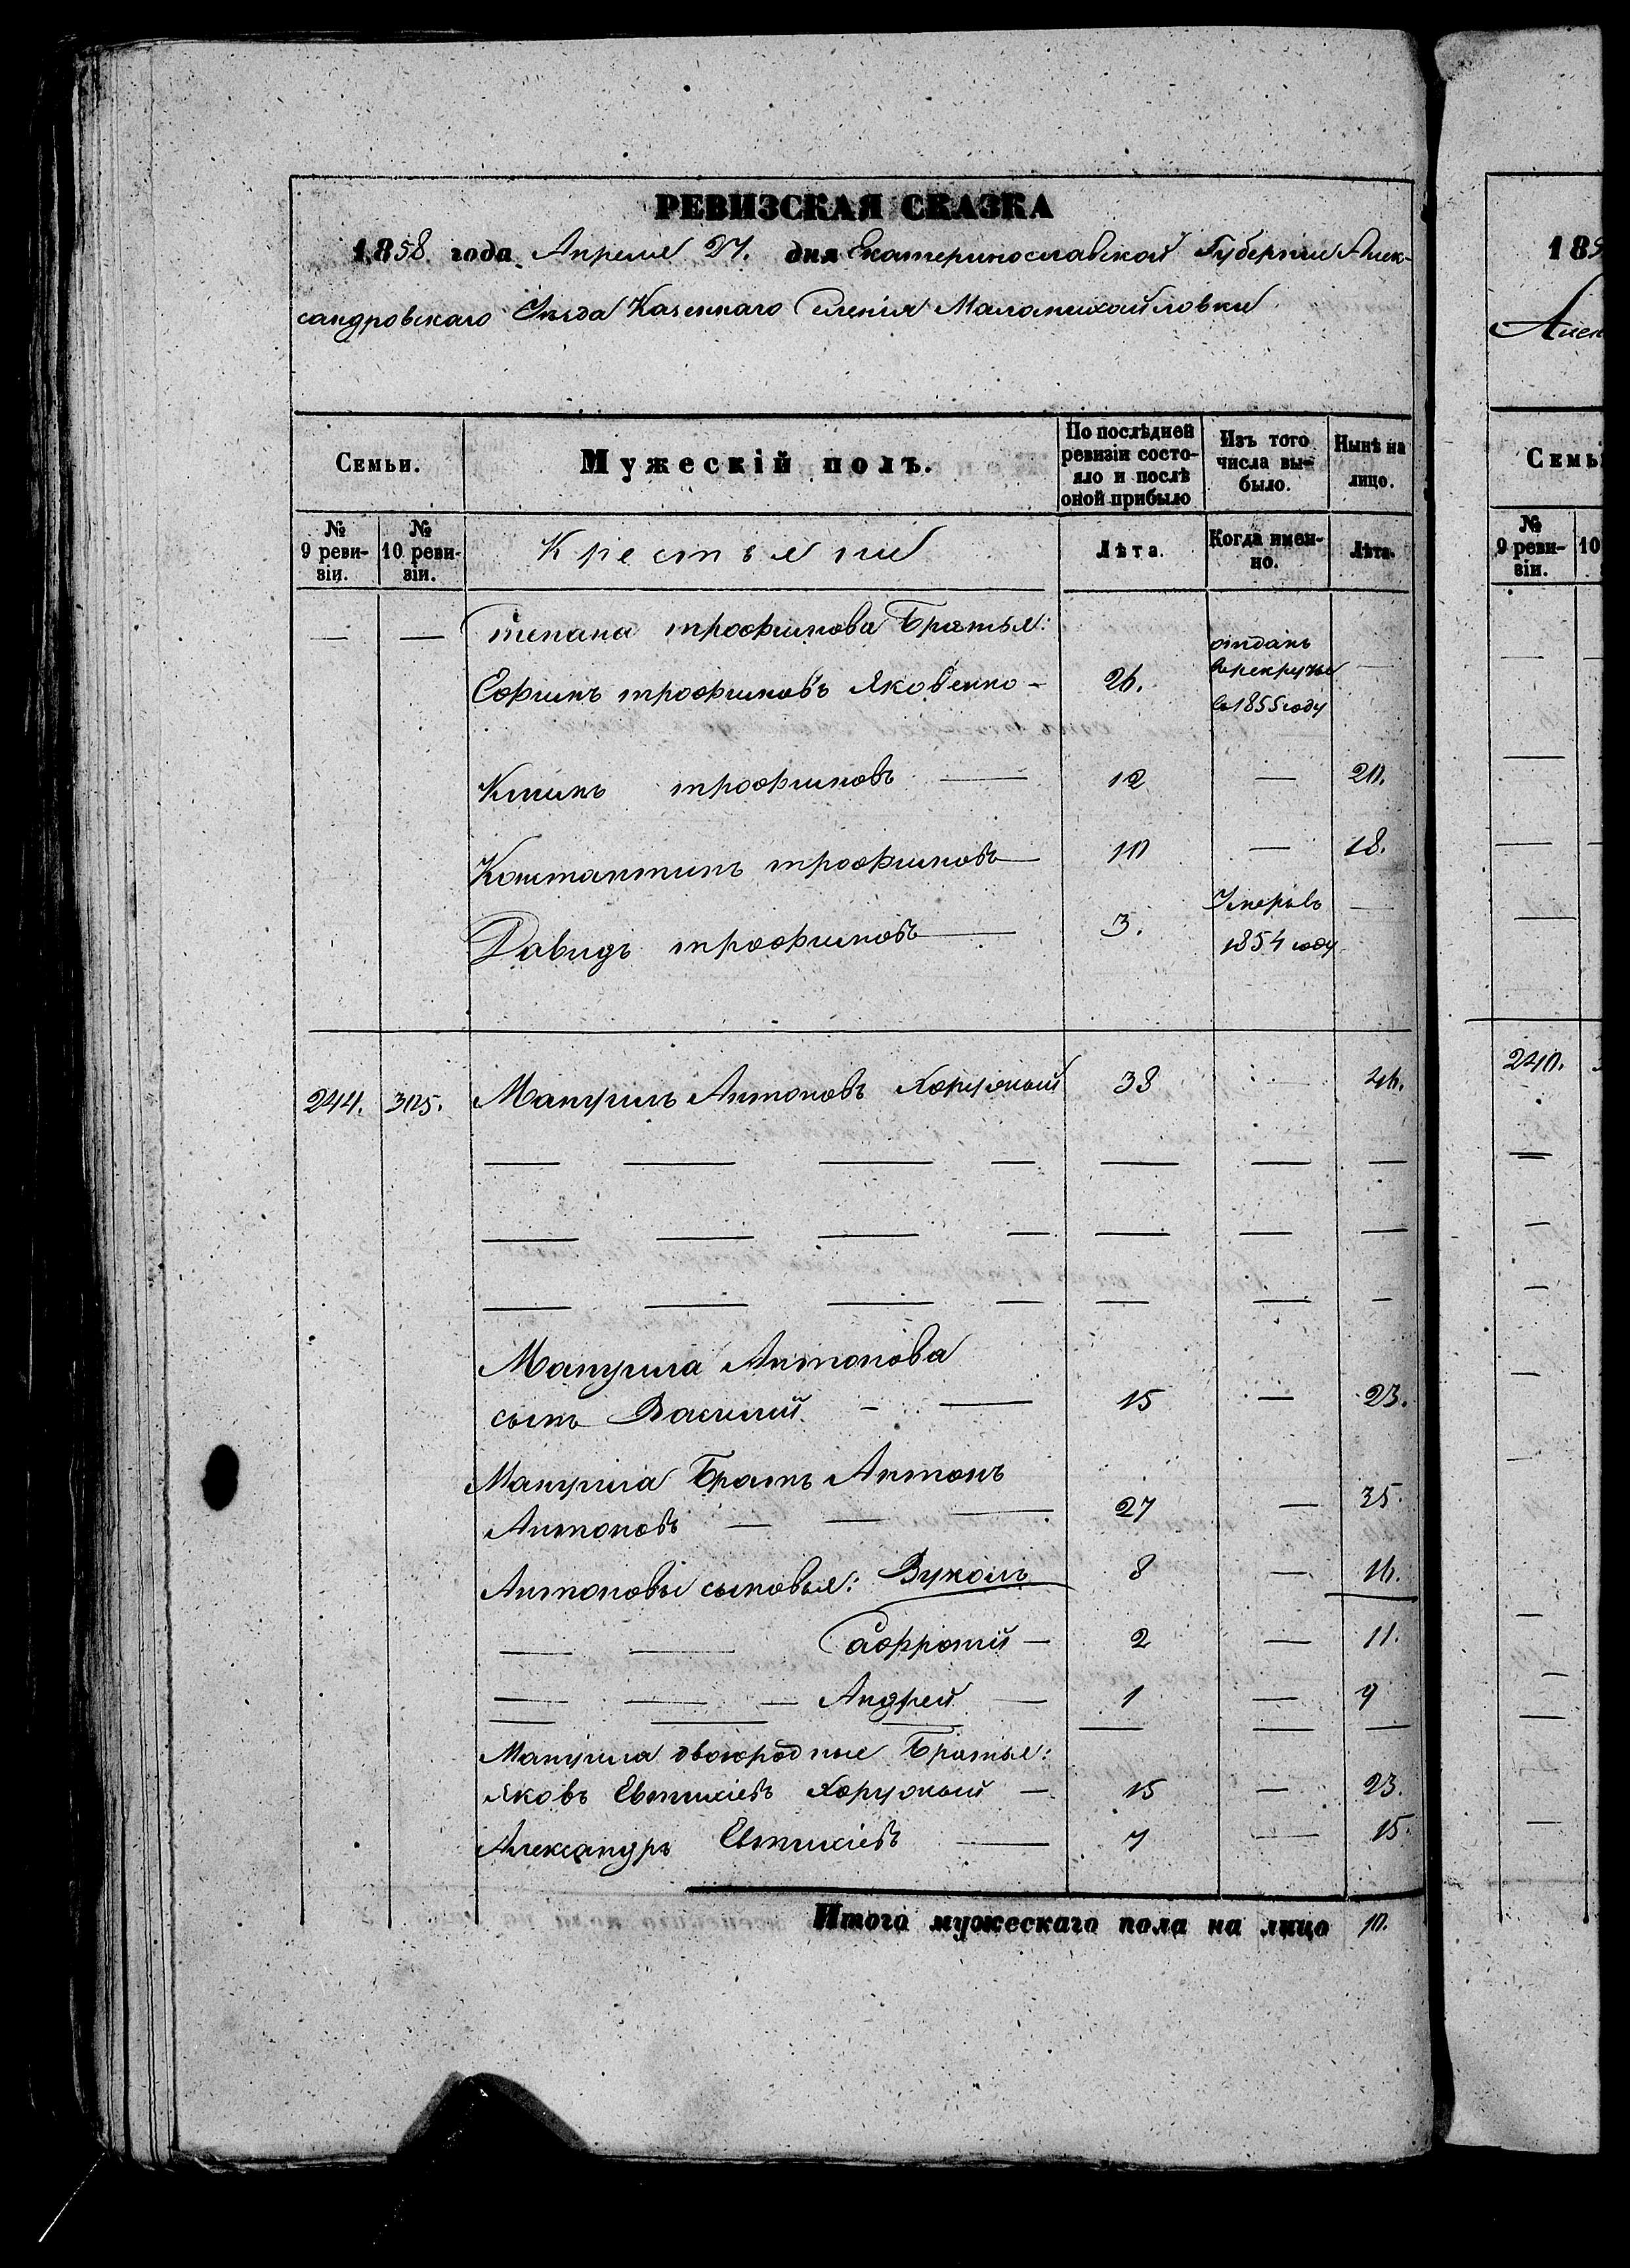 РЕВИЗСКАЯ СКАЗКА
1858 года Апреля 27. дня Екатеринославской Губерніи Алек-
сандровскаго Уѣзда Казеннаго Селенія Маломихайловки
Семьи.
Мужескій полъ.
По послѣдней ревизіи состо-
яло и послѣ оной прибыло
Изъ того числа вы-
было.
Нынѣ на лицо.
№ 9 реви-
зіи.
№ 10 реви-
зіи.
Крестьяне
Лѣта.
Когда имен-
но.
Лѣта.
— — Степана трофимова Братья:
Ефимъ трофимовъ Яковенко — 26. отданъ в рекруты в 1855 году —
Климъ трофимовъ — 12 — 20.
Константинъ трофимовъ — 10 — 18.
Давидъ трофимовъ — 3. Умеръ въ 1854 году —
244. 305. Мануилъ Антоновъ Хоружый 38 46.
Мануила Антонова
сынъ Василий — 15 — 23.
Мануила Братъ Антонъ
Антоновъ — 27 — 35.
Антоновы сыновья: Вуколъ 8 — 16.
Софроній — 2 — 11.
Андрей — 1 — 9
Мануила двоюродные Братья:
Яковъ Евтихіевъ Хоружый — 15 — 23.
Александръ Евтихіевъ — 7 — 15.
Итого мужескаго пола на лицо 10.
185
Алек
Семьи
№ 9 реви-
зіи.
10
240.